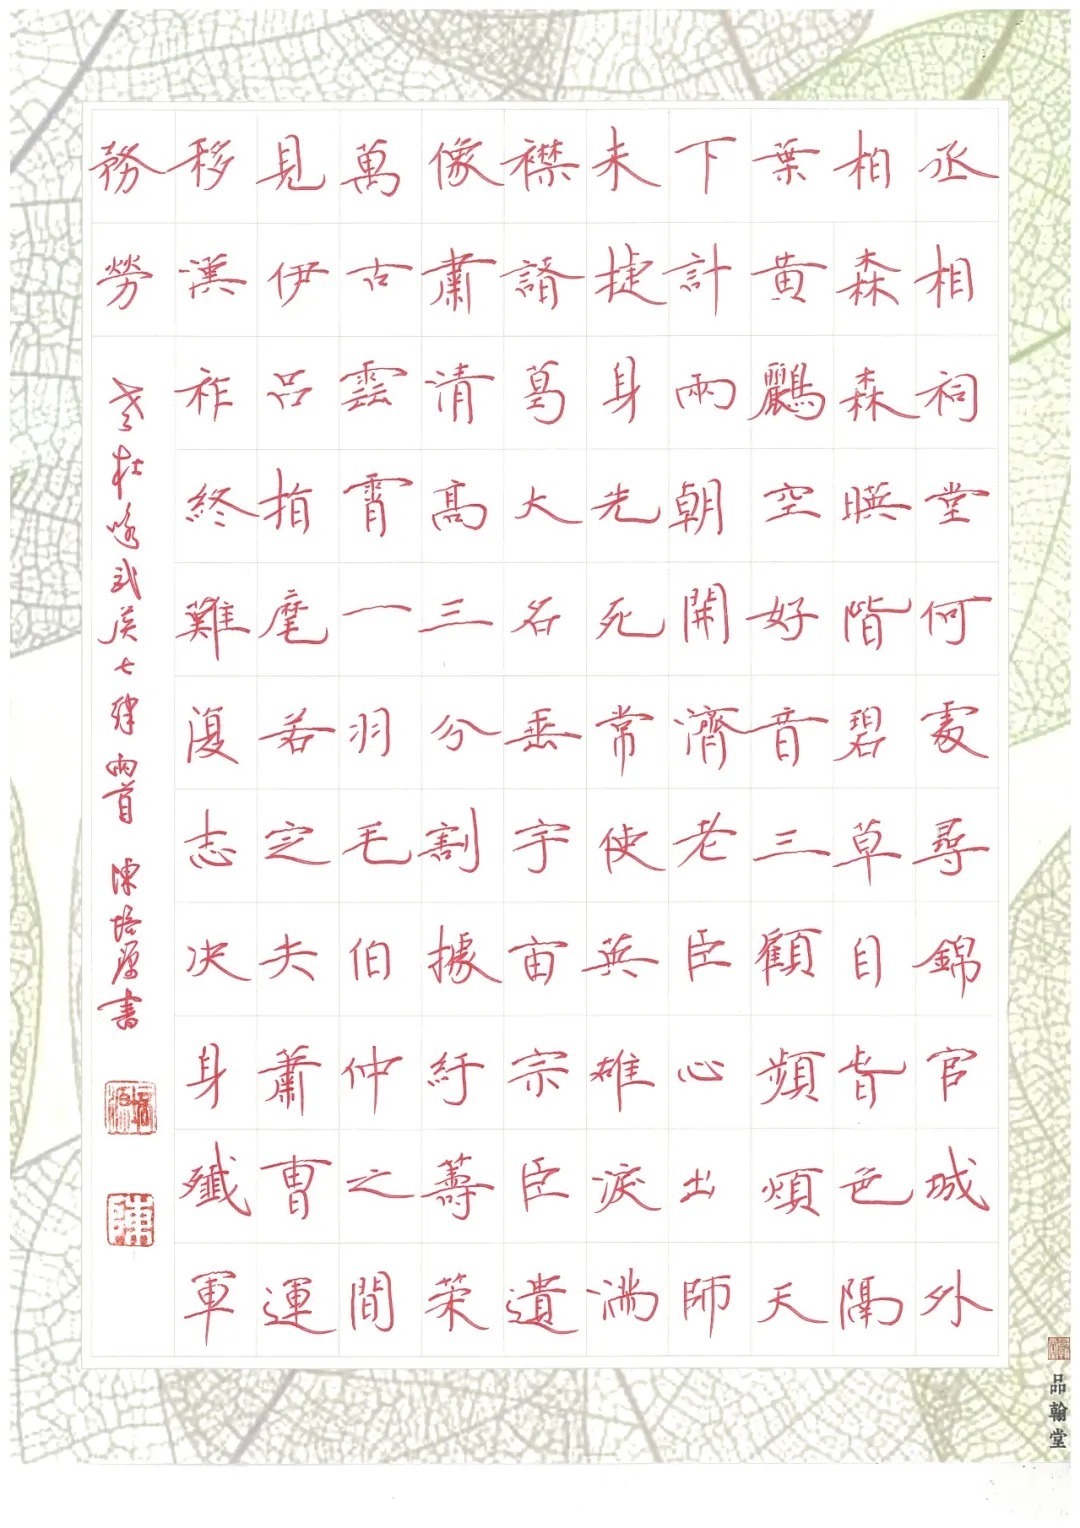 丞相祠堂何處尋錦官城外
柏森森暎階碧草自旾色隔
葉黃鸝空好音三顧頻煩天
下計兩朝開濟老臣心出師
未捷身先死常使英雄淚滿
襟諸葛大名垂宇宙宗臣遺
像肅清高三分割據紆籌策
萬古雲霄一羽毛伯仲之間
見伊呂指麾若定失蕭曹運
移漢祚終難復志决身殲軍
務勞
老杜咏武侯七律兩首 陳培源書
陳
品翰堂